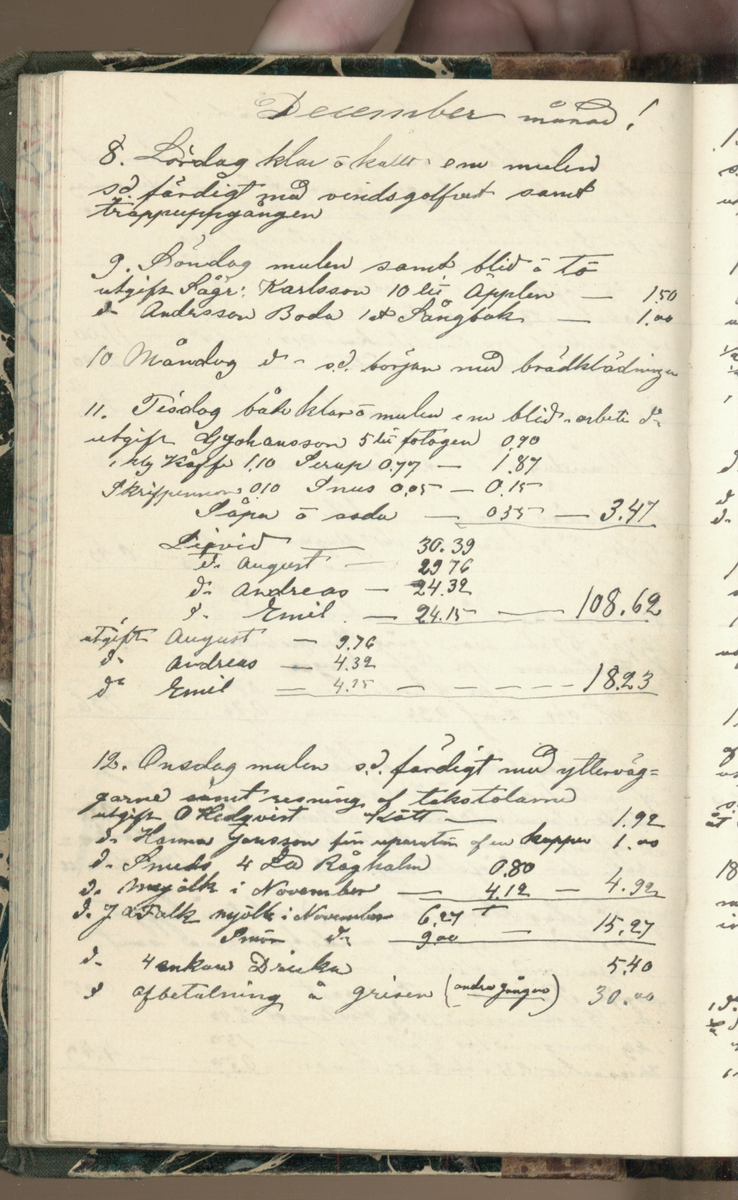 December månad!
8. Lördag klar ö kallt em mulen
s.d. färdigt med vindsgolfvet samt
trappuppgången
9. Söndag mulen samt blid ö tö
utgift Sågr: Karlsson 10 lit Äpplen — 1.50
d- Andersson Boda 1 st Sångbok — 1.00
10 Måndag d- s.d. början med brädklädningen
11. Tisdag både klar ö mulen em blid. arbete d-
utgift GJohansson 5 lit fotogen 0.90
1 kg Kaffe 1.10 Sirup 0.77 — 1.87
Skrifpennor 0.10 Snus 0.05 — 0.15
Såpa ö soda — 0.55 — 3.47
Liqvid — 30.39
d- August — 29.76
d- Andreas — 24.32
d- Emil — 24.15 — 108.62
utgift August — 9.76
d- Andreas — 4.32
d- Emil — 4.15 — — — — 18.23
12. Onsdag mulen s.d. färdigt med ytterväg=
garne samt resning af takstolarne
utgift O Hedqvist Kött — 1.92
d- Hanna Jonsson för reparation af en kappa 1.00
d. Smeds 4 Råghalm 0.80
d- mjölk i November — 4.12 — 4.92
d. J a Falk mjölk i November 6.27
Smör d- 9.00 15.27
d- 4 ankare Dricka 5.40
d afbetalning å grisen (andra gången) 30.00